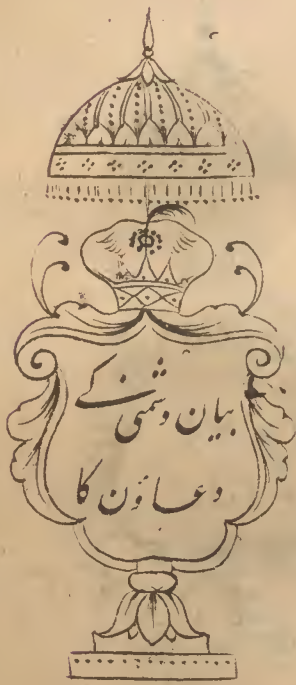 بیان دشمنی کے
دعاؤن کا